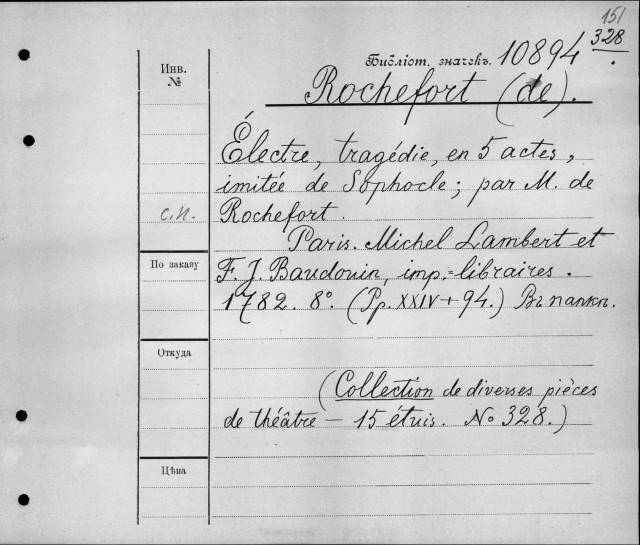 151
328
Библіот. значекъ. 10894
Инв.
№
Rochefort (de).
Électre, tragédie, en 5 actes,
imitée de Sophocle; par M. de
с.п.
Rochefort.
Paris. Michel Lambert et
По заказу
F. J. Baudouin, imp.-libraires.
1782. 8°. (Pp. XXIV + 94.) Въ папкѣ.
Откуда
(Collection de diverses pièces
de théâtre — 15 étuis. No 328.)
Цѣна